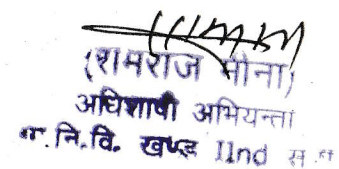 (रामराज मीना)
अधिशाषी अभियन्ता
नि.वि. खण्ड IInd